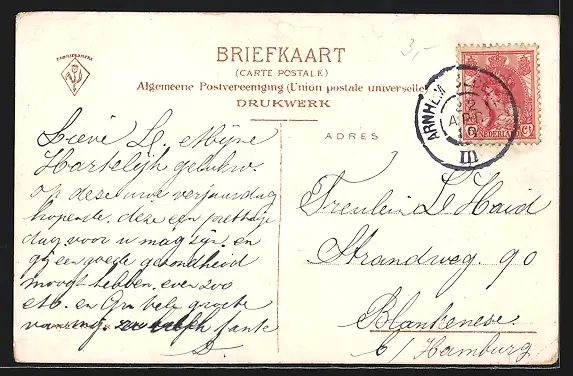 FABRIEKSMERK
BRIEFKAART
(CARTE POSTALE)
Algemeene Postvereeniging (Union postale universelle)
DRUKWERK
ADRES
3,-
ARNHEM
22
APR
10
III
NEDERLAND
Lieve L. Mijne
Hartelijk gelukw.
op deze uwe verjaarsdag
hopende, deze een prettige
dag voor u mag zijn, en
gij een goede gezondheid
moogt hebben, even zoo
etc. en Gr. vele groete
van mij tante
Freulein Le Haid
Strandweg. 90
Blankenese.
b/Hamburg